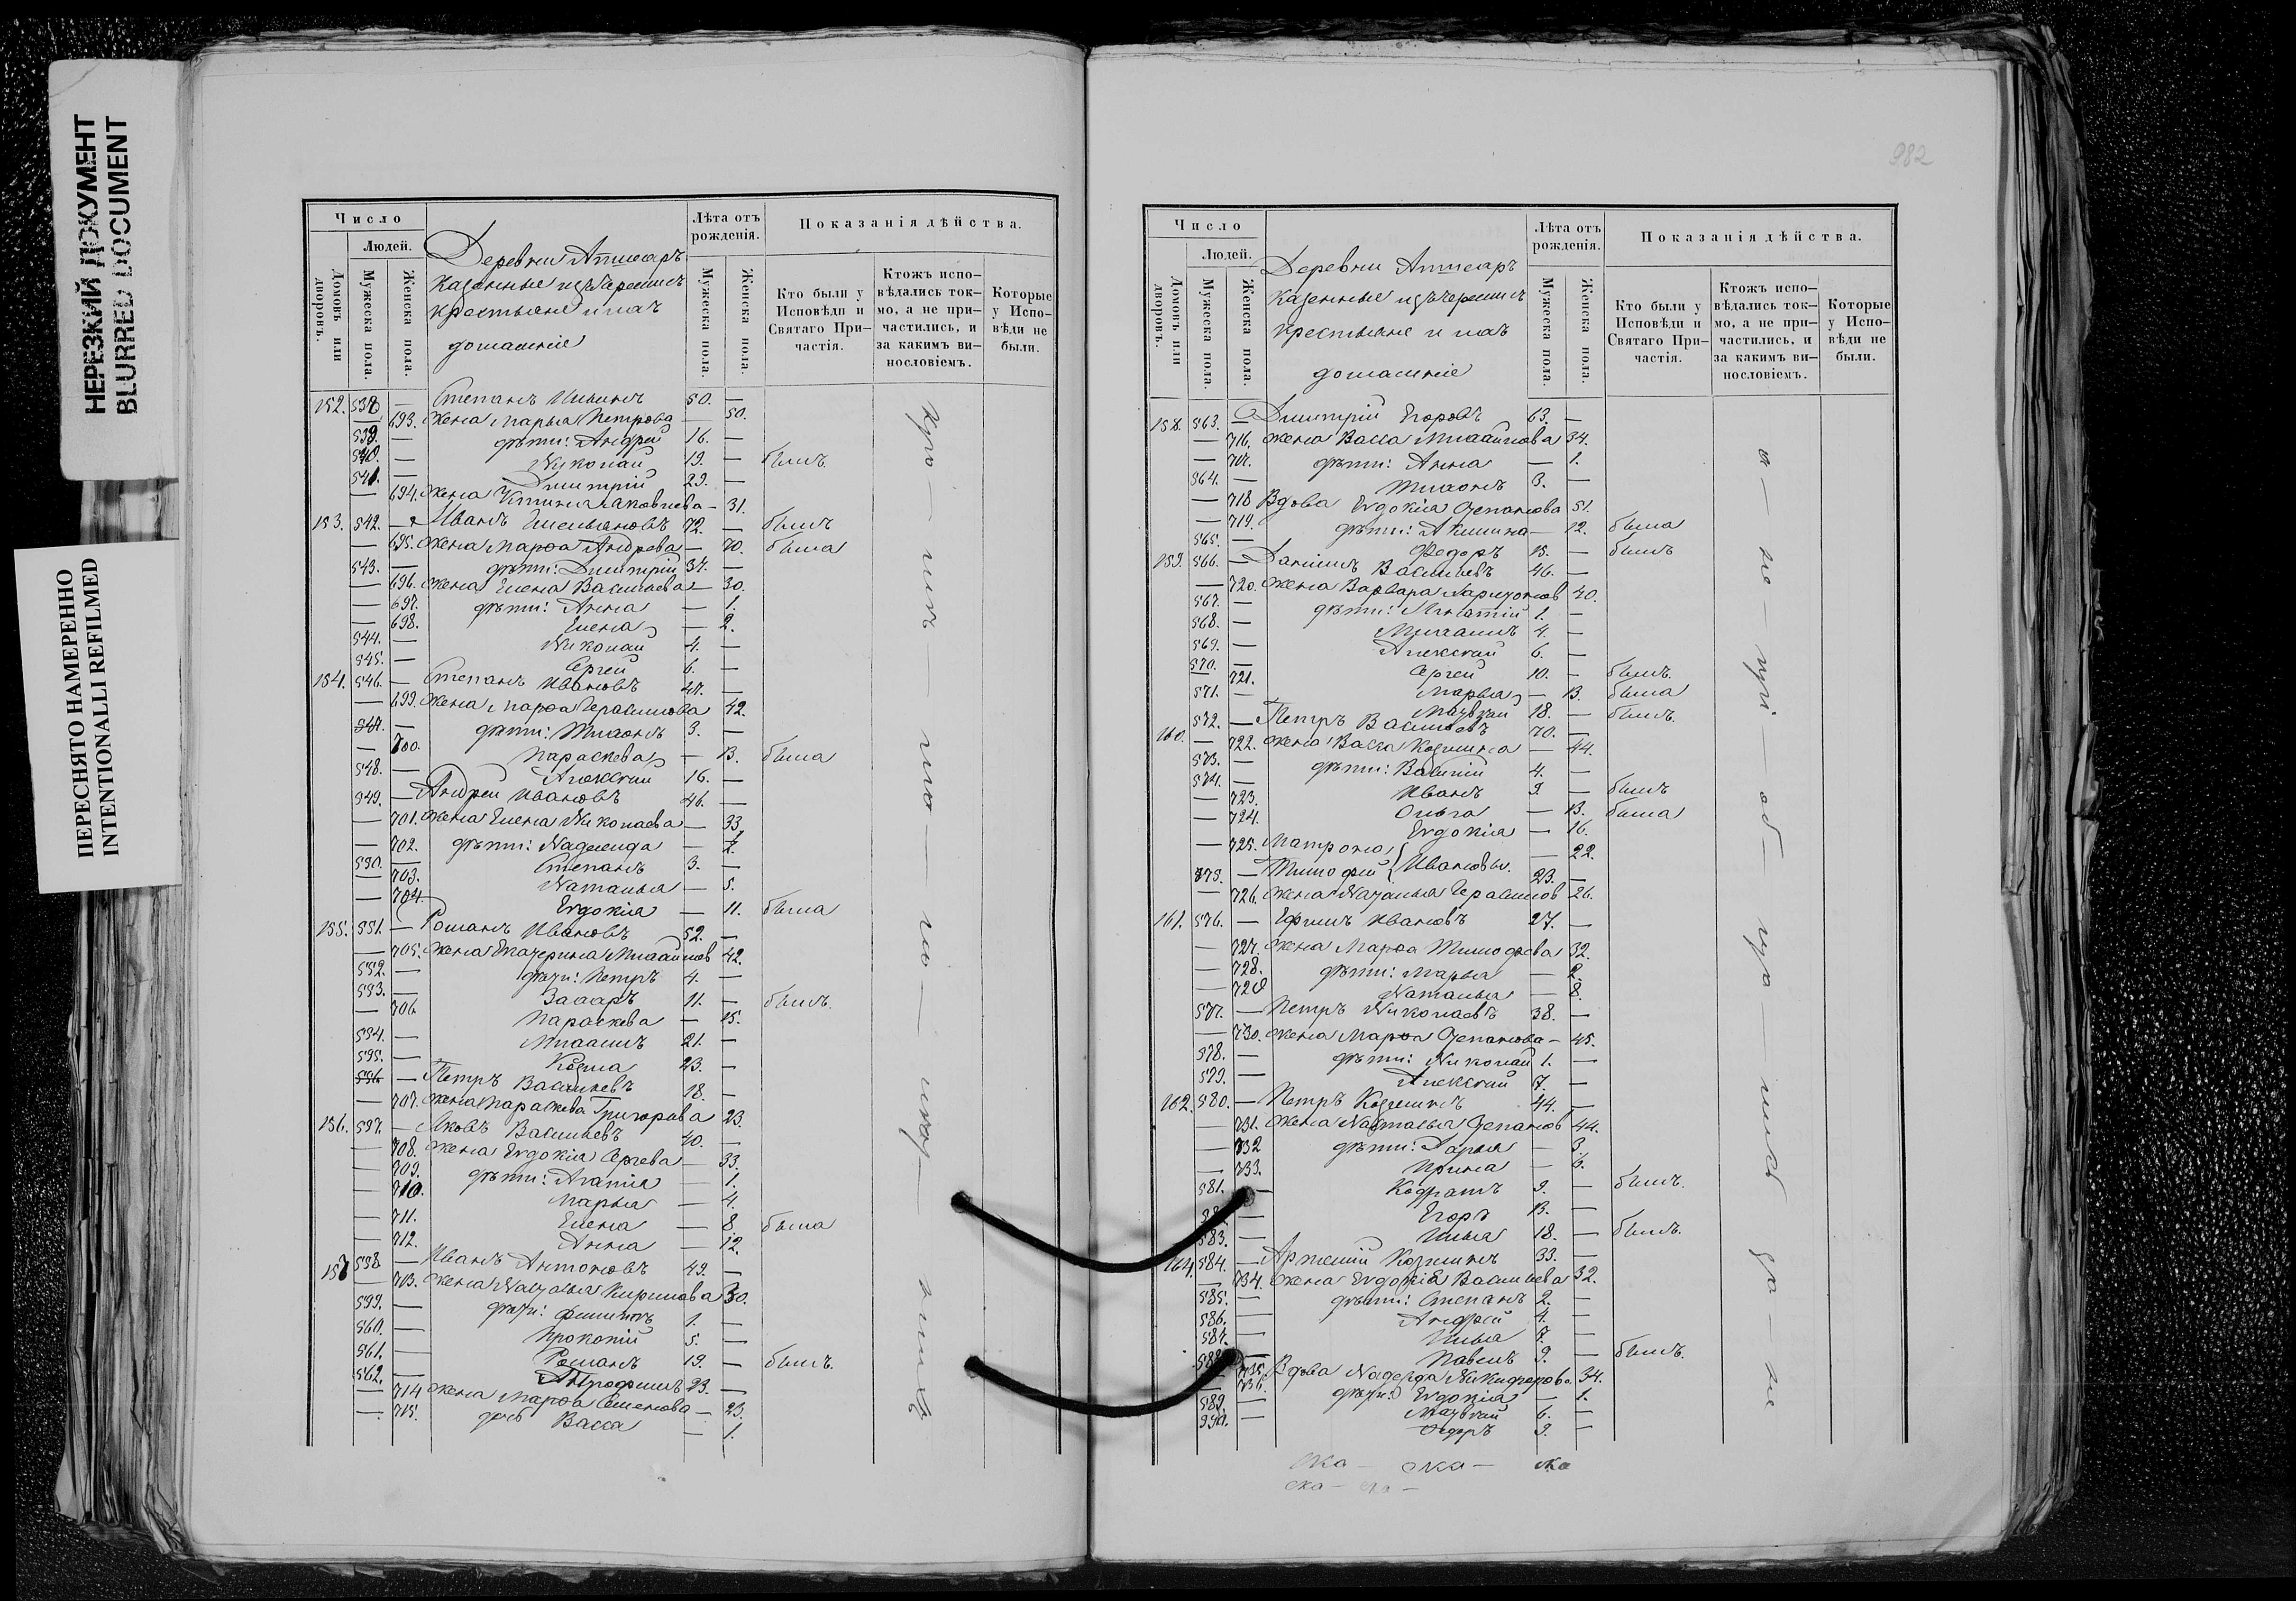 НЕРЕЗКИЙ ДОКУМЕНТ
BLURRED DOCUMENT
ПЕРЕСНЯТО НАМЕРЕННО
INTENTIONALLI REFILMED
Число
Людей.
Домовъ или дворовъ.
Мужеска пола.
Женска пола.
Деревни
казенные изъ черемисъ
крестьяне и ихъ
домашніе
Лѣта отъ рожденія.
Мужеска пола.
Женска пола.
Показанія дѣйства.
Кто были у Исповѣди и Святаго Причастія.
Ктожъ исповѣдались токмо, а не причастились, и за какимъ винословіемъ.
Которые у Исповѣди не были.
152. 538 — Степанъ Ильинъ 50. —
— 693. жена Марья Петрова — 50.
539. — дѣти: Андрей 16. —
540. — Николай 19. — былъ.
541. — Дмитрій 29. —
— 694. жена Устинья Яковлева — 31.
153. 542. — Иванъ Емельяновъ 72. — былъ
— 695. жена Марѳа Андреева — 70. была
543. — дѣти: Дмитрій 37. —
— 696. жена Елена Васильева — 30.
— 697. дѣти: Анна — 1.
— 698. Елена — 2.
544. — Николай 4. —
545. — Сергей 6. —
154. 546. — Степанъ Ивановъ 47. —
— 699. жена Марѳа Герасимова 42.
547. — дѣти: Тихонъ 3. —
— 700. Параскева — 13. была
548. — Алексѣй 16. —
549. — Андрей Ивановъ 46. —
— 701. жена Елена Николаева — 33.
— 702. дѣти: Надежда —
550. — Степанъ 3. —
— 703. Наталья — 5.
— 704. Евдокія — 11. была
155. 551. — Романъ Ивановъ 52. —
— 705. жена Екатерина Михайлов 42.
552. — дѣти: Петръ 4. —
553. — Захаръ 11. — былъ.
— 706. Параскева — 15.
554. — Михаилъ 21. —
555. — Козма 23. —
556 — Петръ Васильевъ 18. —
— 707. жена Параскева Григорьева 23.
156. 557. — Яковъ Васильевъ 40. —
— 708. жена Евдокія Сергеева — 33.
— 709. дѣти: Агапія — 1.
— 710. Марья — 4.
— 711. Елена — 8. была
— 712. Анна — 12.
157 558 — Иванъ Антоновъ 49. —
— 713. жена Наталья Кирилова 30.
559. — дѣти: Филиппъ 1. —
560. — Прокопій 5. —
561. — Романъ 19. — былъ.
562. — Трофимъ 23. —
— 714 жена Марѳа Семенова — 23.
— 715. дочь Васса — 1.
982
Число
Людей.
Домовъ или дворовъ.
Мужеска пола.
Женска пола.
Деревни
казенные изъ черемисъ
крестьяне и ихъ
домашніе
Лѣта отъ рожденія.
Мужеска пола.
Женска пола.
Показанія дѣйства.
Кто были у Исповѣди и Святаго Причастія.
Ктожъ исповѣдались токмо, а не причастились, и за какимъ винословіемъ.
Которые у Исповѣди не были.
158. 563. — Димитрій Егоровъ 63. —
— 716. жена Васса Михайлова 34.
— 717. дѣти: Анна — 1.
564. — Тихонъ 3. —
— 718 Вдова Евдокія Степанова 51.
— 719. дѣти: Акилина — 12. была
565. — Федоръ 15. — былъ
159. 566. — Даніилъ Васильевъ 46. —
— 720. жена Варвара Ларионов 40.
567. — дѣти: Игнатій 1. —
568. — Михаилъ 4. —
569. — Алексѣй 6. —
570. — Сергей 10. — былъ.
— 721. Марья — 13. была
571. — Матвѣй 18. — былъ.
160. 572. — Петръ Васильевъ 70. —
— 722. жена Васса Козмина — 44.
573. — дѣти: Василій 4. —
574. — Иванъ 9. — былъ
— 723. Ольга — 13. была
— 724. Евдокія — 16.
— 725. Матрона — 22.
575. — Тимофей Ивановы. 23. —
— 726. жена Наталья Герасимов 26.
161. 576. — Ефимъ Ивановъ 27. —
— 727. жена Марѳа Тимофеева 32.
— 728. дѣти: Марья — 2.
— 729 Наталья — 8.
577. — Петръ Николаевъ 38. —
— 730. жена Марѳа Степанова — 45.
578. — дѣти: Николай 1. —
579. — Алексѣй 7. —
162. 580. — Петръ Козминъ 44. —
— 731. жена Наталья Степанов 44.
— 732 дѣти: Дарья — 3.
— 733. Ирина — 6.
581. — Кодратъ 9. — былъ.
— Егоръ 13. —
583. — Илья 18. — былъ.
164. 584. — Арсеній Козминъ 33. —
— 734. жена Евдокія Васильева 32.
585. — дѣти: Степанъ 2. —
586. — Андрей 4. —
587. — Илья 7. —
588 — Павелъ 9. — былъ.
— 735. Вдова Надежда Никифорова. 34.
— 736. дѣти: Евдокія — 1.
589. — Матвѣй 6. —
590. — Федоръ 9. —